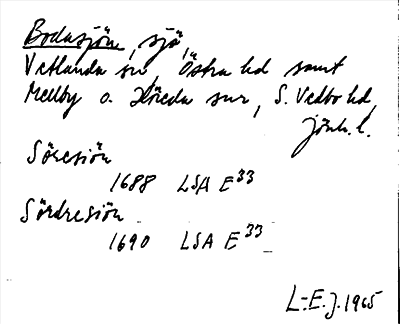 Bodasjön, sjö,
Vetlanda sn, Östra hd samt
Mellby o. Skireda snr, S. Vedbo hd,
Jönk. l.
Söresiön
1688 LSA E 33
Sördresiön
1690 LSA E 33
L-E. J. 1965